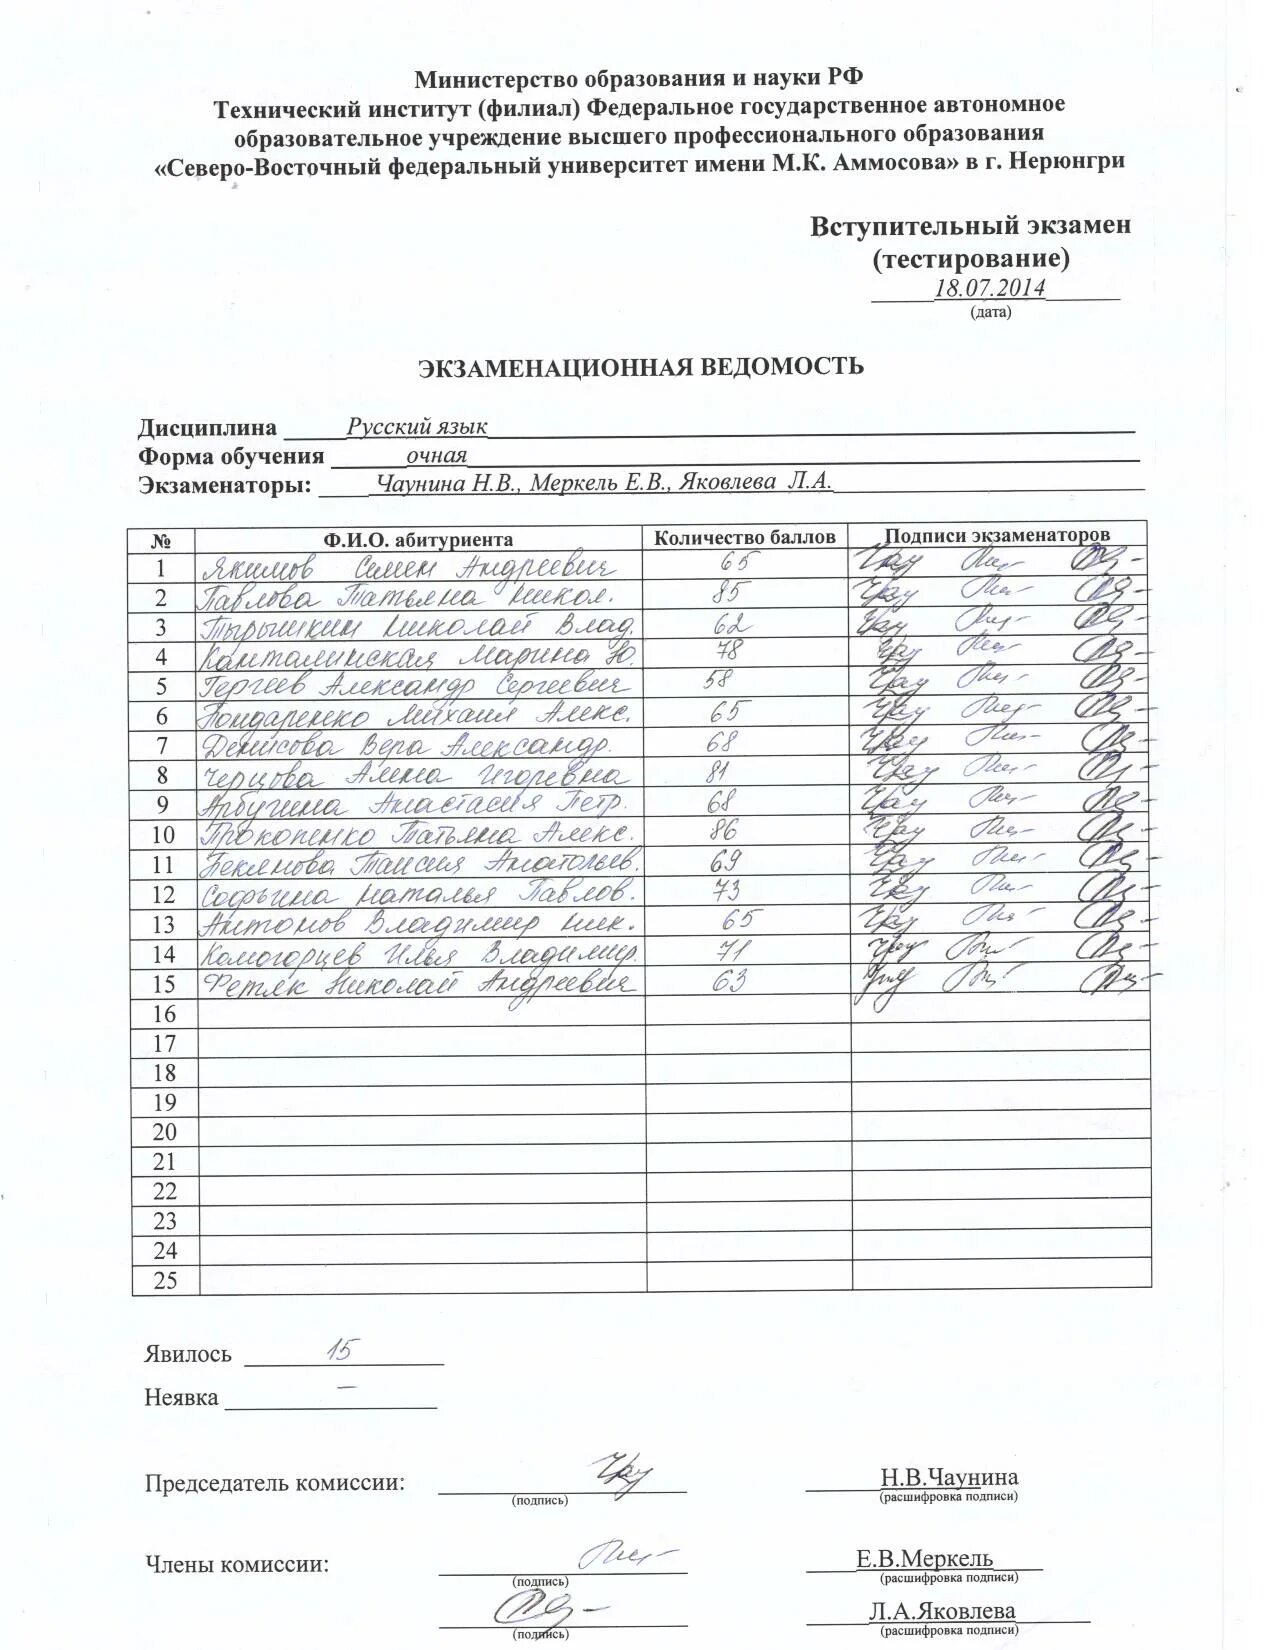 Министерство образования и науки РФ
Технический институт (филиал) Федеральное государственное автономное
образовательное учреждение высшего профессионального образования
«Северо-Восточный федеральный университет имени М.К. Аммосова» в г. Нерюнгри
Вступительный экзамен
(тестирование)
18.07.2014
(дата)
ЭКЗАМЕНАЦИОННАЯ ВЕДОМОСТЬ
Дисциплина Русский язык
Форма обучения очная
Экзаменаторы: Чаунина Н.В., Меркель Е.В., Яковлева Л.А.
№ Ф.И.О. абитуриента Количество баллов Подписи экзаменаторов
1 Якимов Семен Андреевич 65
2 Павлова Татьяна Никол. 85
3 Тырышкин Николай Влад. 62
4 Канталинская Марина Ю. 78
5 Гергеев Александр Сергеевич 58
6 Бондаренко Михаил Алекс. 65
7 Денисова Вера Александр. 68
8 Черцова Алена Игоревна 81
9 Арбугина Анастасия Петр. 68
10 Прокопенко Татьяна Алекс. 86
11 Беклемова Таисия Анатольев. 69
12 Софьина Наталья Павлов. 73
13 Антонов Владимир Ник. 65
14 Комогорцев Илья Владимир. 71
15 Фетяк Николай Андреевич 63
16
17
18
19
20
21
22
23
24
25
Явилось 15
Неявка –
Председатель комиссии: Н.В.Чаунина
(подпись) (расшифровка подписи)
Члены комиссии: Е.В.Меркель
(подпись) (расшифровка подписи)
Л.А.Яковлева
(подпись) (расшифровка подписи)